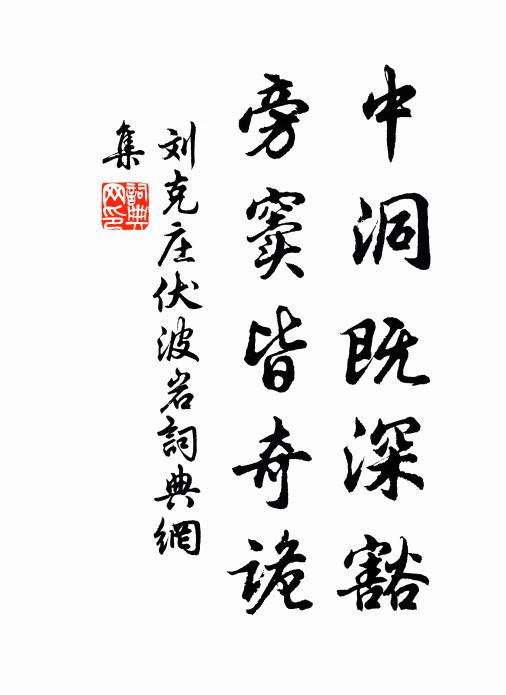 中洞既深豁
旁窦皆奇诡
刘克庄伏波岩詞典網
集
詞典
网印